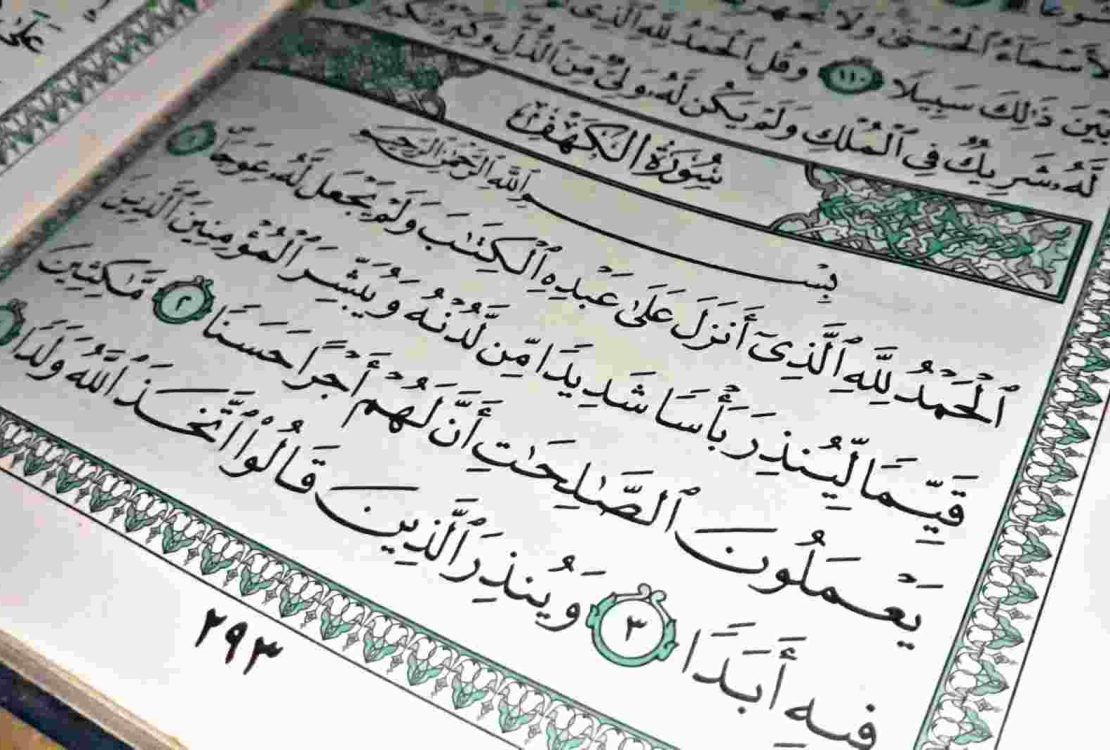 لأَسْمَآءُ ٱلْحُسْنَىٰ وَلَا تَجْهَرْ
بَيْنَ ذَٰلِكَ سَبِيلًا ١١٠ وَقُلِ ٱلْحَمْدُ لِلَّهِ ٱلَّذِى
لَّهُۥ شَرِيكٌ فِى ٱلْمُلْكِ وَلَمْ يَكُن لَّهُۥ وَلِىٌّ مِّنَ ٱلذُّلِّ وَكَبِّرْهُ تَكْبِيرًا
سُورَةُ الكَهْفِ
بِسْمِ ٱللَّهِ ٱلرَّحْمَٰنِ ٱلرَّحِيمِ
ٱلْحَمْدُ لِلَّهِ ٱلَّذِىٓ أَنزَلَ عَلَىٰ عَبْدِهِ ٱلْكِتَٰبَ وَلَمْ يَجْعَل لَّهُۥ عِوَجَا ١
قَيِّمًا لِّيُنذِرَ بَأْسًا شَدِيدًا مِّن لَّدُنْهُ وَيُبَشِّرَ ٱلْمُؤْمِنِينَ ٱلَّذِينَ
يَعْمَلُونَ ٱلصَّٰلِحَٰتِ أَنَّ لَهُمْ أَجْرًا حَسَنًا ٢ مَّٰكِثِينَ
فِيهِ أَبَدًا ٣ وَيُنذِرَ ٱلَّذِينَ قَالُوا۟ ٱتَّخَذَ ٱللَّهُ وَلَدًا
٢٩٣